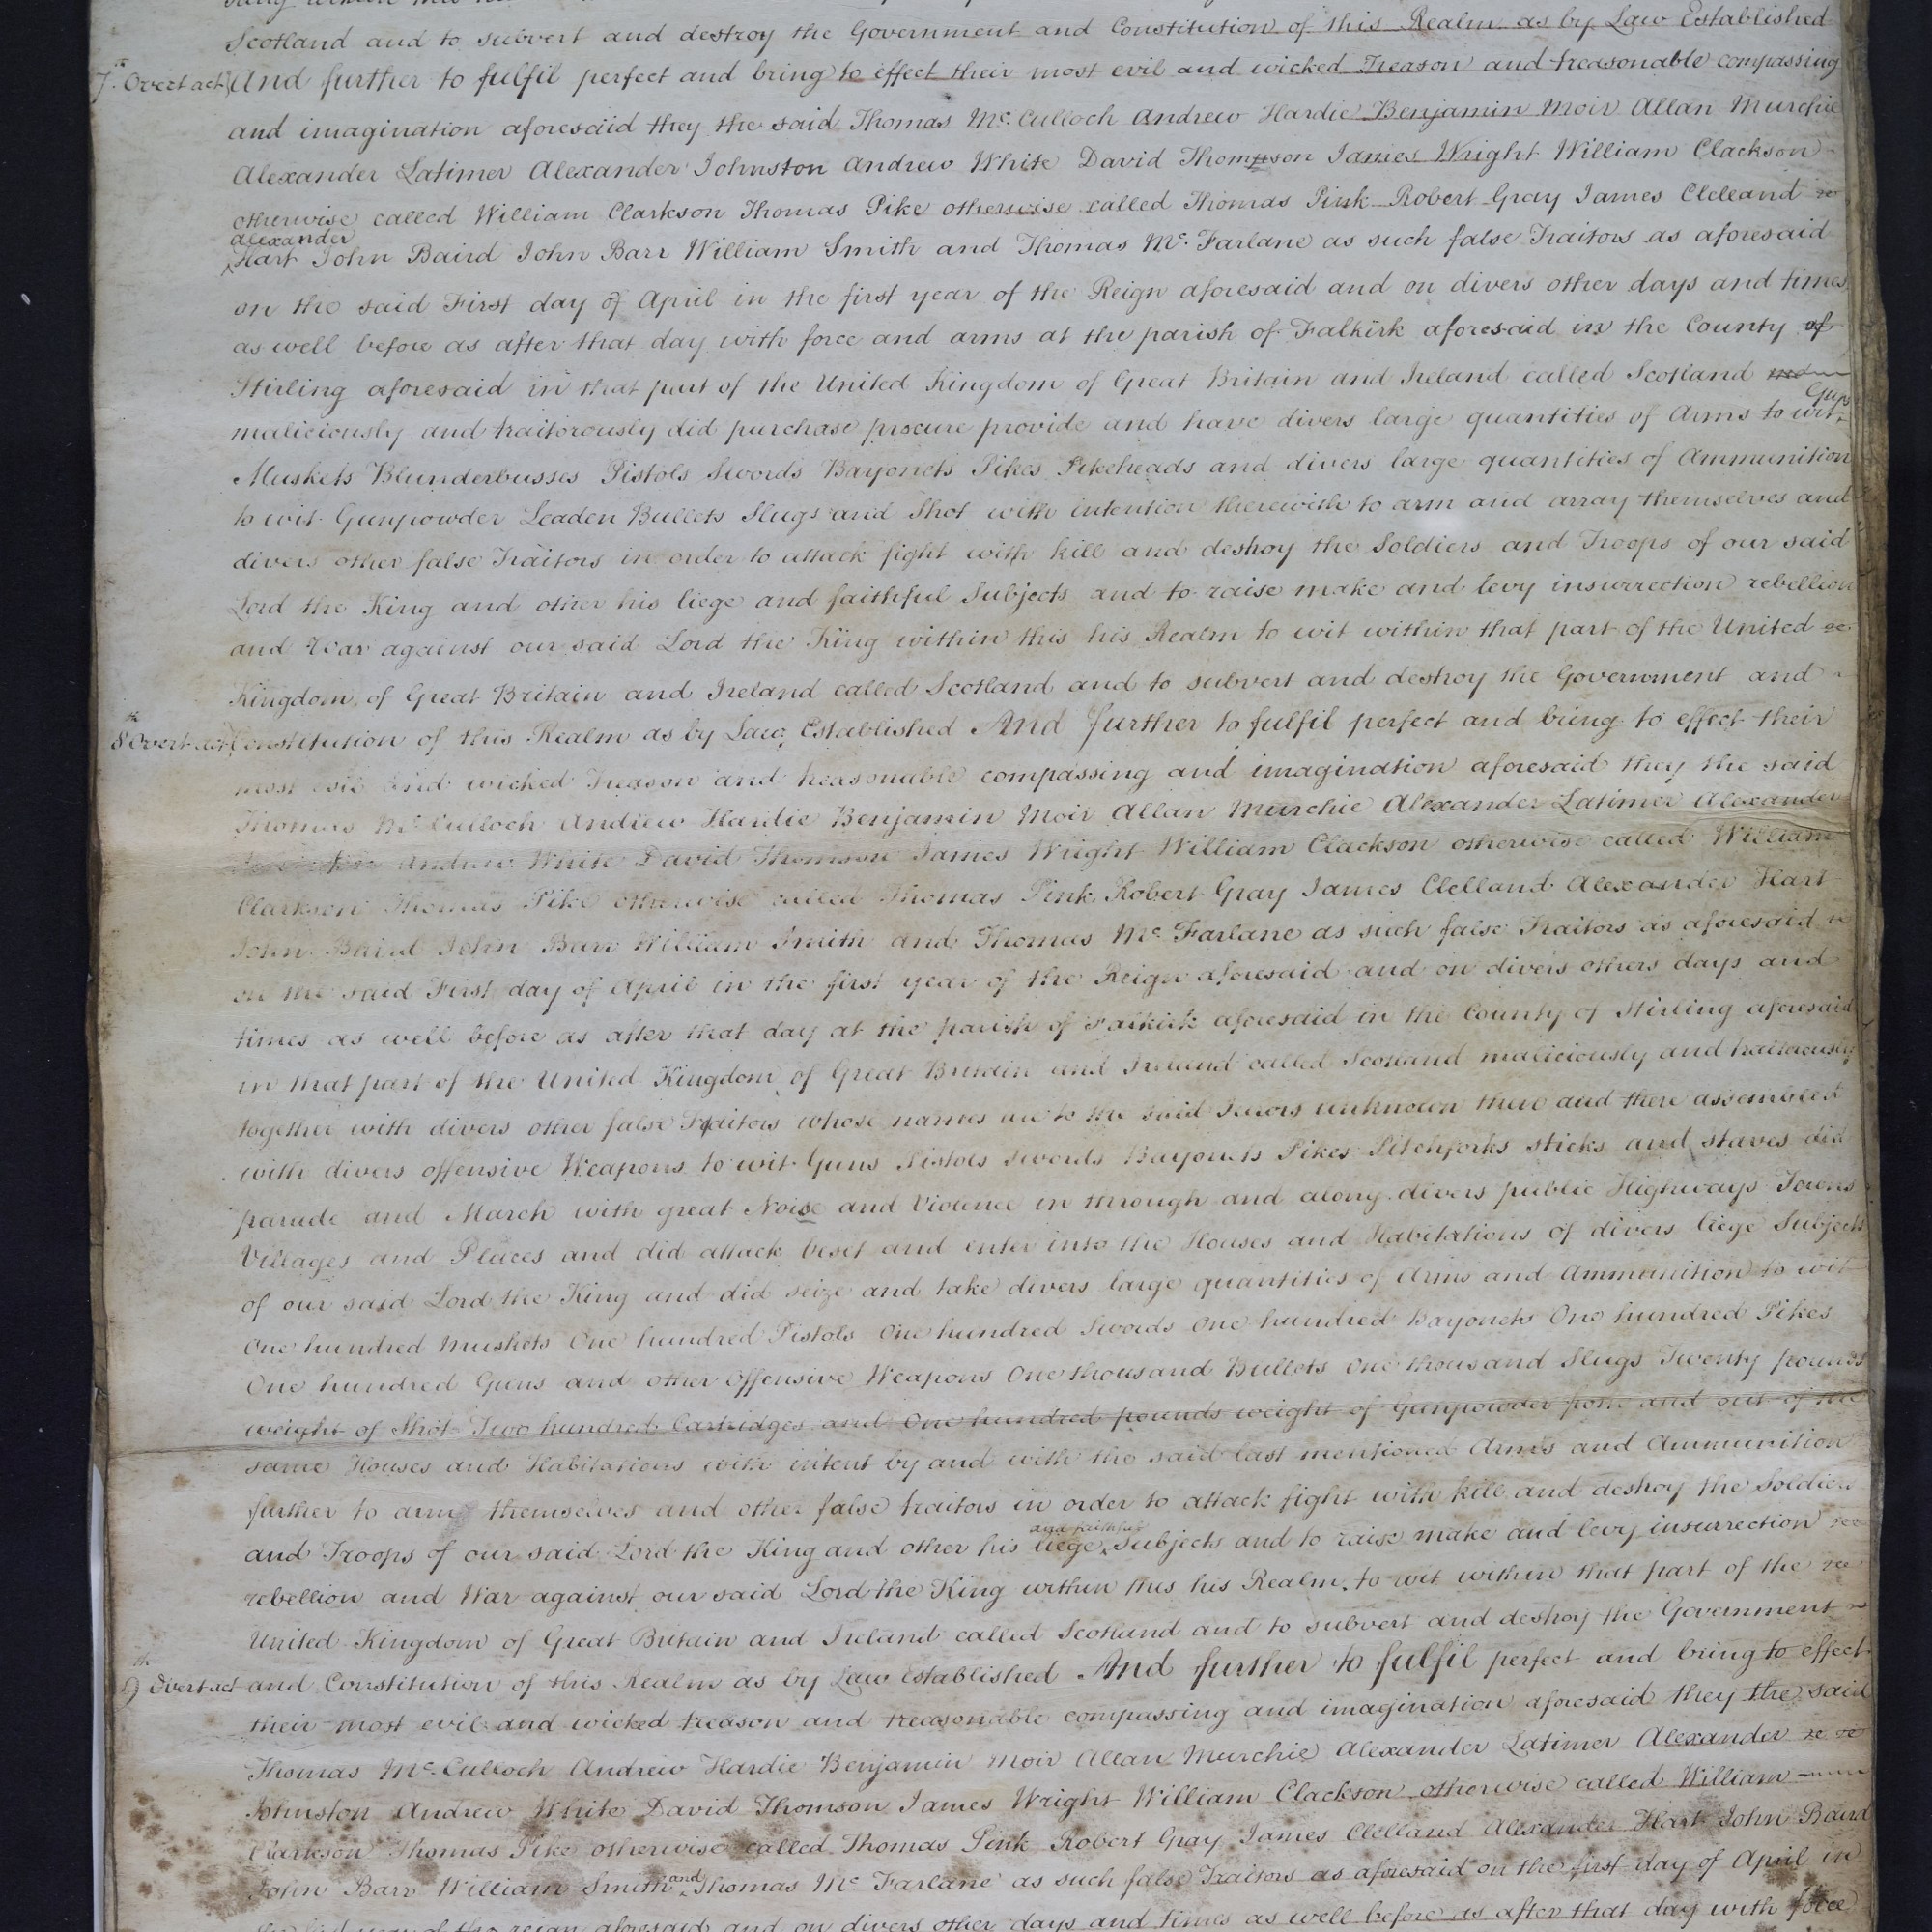 Scotland and to subvert and destroy the Government and Constitution of this Realm as by Law Established
7th Overt act And further to fulfil perfect and bring to effect their most evil and wicked Treason and treasonable compassing
and imagination aforesaid they the said Thomas Mc. Culloch Andrew Hardie Benjamin Moir Allan Murchie
Alexander Latimer Alexander Johnston Andrew White David Thomson James Wright William Clackson
otherwise called William Clarkson Thomas Pike otherwise called Thomas Pink Robert Gray James Clelland
Alexander
Hart John Baird John Barr William Smith and Thomas Mc. Farlane as such false Traitors as aforesaid
on the said First day of April in the first year of the Reign aforesaid and on divers other days and times
as well before as after that day with force and arms at the parish of Falkirk aforesaid in the County of
Stirling aforesaid in that part of the United Kingdom of Great Britain and Ireland called Scotland
Guns
maliciously and traitorously did purchase procure provide and have divers large quantities of Arms to wit
Muskets Blunderbusses Pistols Swords Bayonets Pikes Pikeheads and divers large quantities of Ammunition
to wit Gunpowder Leaden Bullets Slugs and Shot with intention therewith to arm and array themselves and
divers other false Traitors in order to attack fight with kill and destroy the Soldiers and Troops of our said
Lord the King and other his liege and faithful Subjects and to raise make and levy insurrection rebellion
and War against our said Lord the King within this his Realm to wit within that part of the United
Kingdom of Great Britain and Ireland called Scotland and to subvert and destroy the Government and
8th Overt act Constitution of this Realm as by Law Established And further to fulfil perfect and bring to effect their
most evil and wicked Treason and treasonable compassing and imagination aforesaid they the said
Thomas Mc. Culloch Andrew Hardie Benjamin Moir Allan Murchie Alexander Latimer Alexander
Johnston Andrew White David Thomson James Wright William Clackson otherwise called William
Clarkson Thomas Pike otherwise called Thomas Pink Robert Gray James Clelland Alexander Hart
John Baird John Barr William Smith and Thomas Mc. Farlane as such false Traitors as aforesaid
on the said First day of April in the first year of the Reign aforesaid and on divers others days and
times as well before as after that day at the parish of Falkirk aforesaid in the County of Stirling aforesaid
in that part of the United Kingdom of Great Britain and Ireland called Scotland maliciously and traitorously
together with divers other false Traitors whose names are to the said Jurors unknown then and there assembled
with divers offensive Weapons to wit Guns Pistols Swords Bayonets Pikes Pitchforks sticks and staves did
parade and March with great Noise and Violence in through and along divers public Highways Towns
Villages and Places and did attack beset and enter into the Houses and Habitations of divers liege Subjects
of our said Lord the King and did seize and take divers large quantities of Arms and Ammunition to wit
One hundred Muskets One hundred Pistols One hundred Swords One hundred Bayonets One hundred Pikes
One hundred Guns and other Offensive Weapons One thousand Bullets One thousand Slugs Twenty pounds
weight of Shot Two hundred Cartridges and One hundred pounds weight of Gunpowder from and out of the
same Houses and Habitations with intent by and with the said last mentioned Arms and Ammunition
further to arm themselves and other false traitors in order to attack fight with kill and destroy the Soldiers
and faithful
and Troops of our said Lord the King and other his liege Subjects and to raise make and levy insurrection
rebellion and War against our said Lord the King within this his Realm to wit within that part of the
United Kingdom of Great Britain and Ireland called Scotland and to subvert and destroy the Government
9th Overt act and Constitution of this Realm as by Law Established And further to fulfil perfect and bring to effect
their most evil and wicked treason and treasonable compassing and imagination aforesaid they the said
Thomas Mc. Culloch Andrew Hardie Benjamin Moir Allan Murchie Alexander Latimer Alexander
Johnston Andrew White David Thomson James Wright William Clackson otherwise called William
Clarkson Thomas Pike otherwise called Thomas Pink Robert Gray James Clelland Alexander Hart John Baird
John Barr William Smith and Thomas Mc. Farlane as such false Traitors as aforesaid on the first day of April in
the reign aforesaid and on divers other days and times as well before as after that day with force